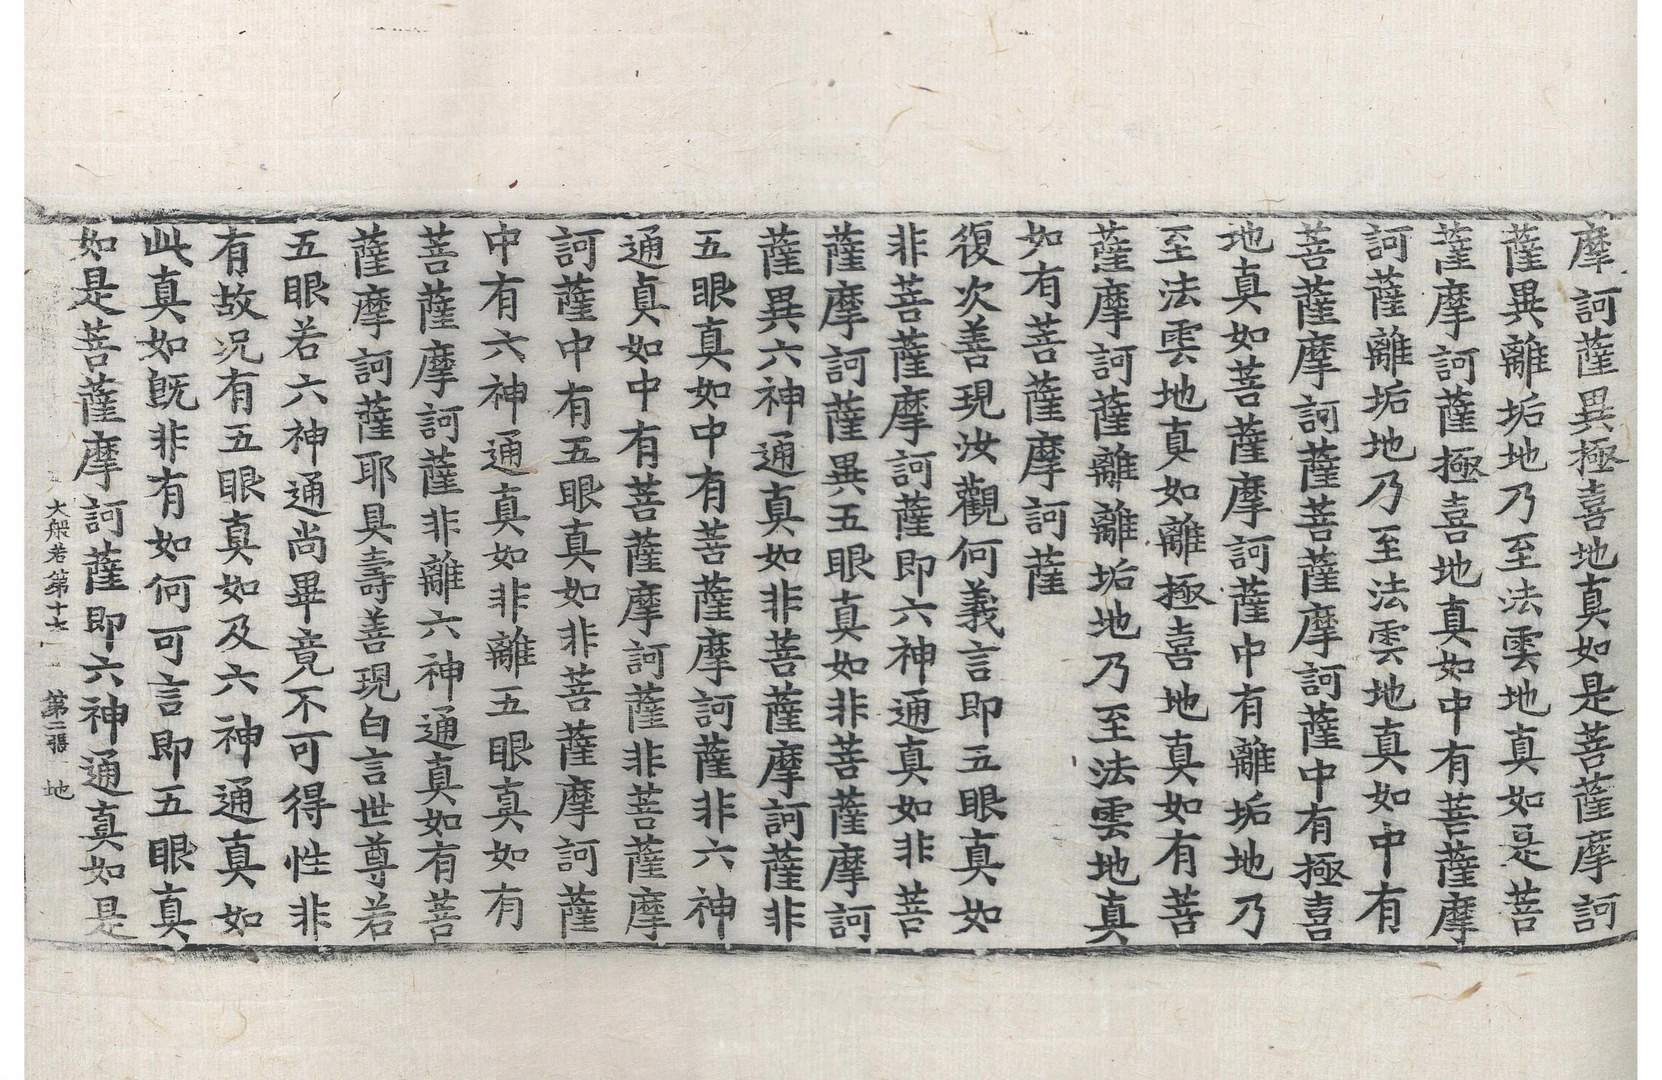 摩訶薩異極喜地真如是菩薩摩訶
薩異離垢地乃至法雲地真如是菩
薩摩訶薩極喜地真如中有菩薩摩
訶薩離垢地乃至法雲地真如中有
菩薩摩訶薩菩薩摩訶薩中有極喜
地真如菩薩摩訶薩中有離垢地乃
至法雲地真如離極喜地真如有菩
薩摩訶薩離離垢地乃至法雲地真
如有菩薩摩訶薩
復次善現汝觀何義言即五眼真如
非菩薩摩訶薩即六神通真如非菩
薩摩訶薩異五眼真如非菩薩摩訶
薩異六神通真如非菩薩摩訶薩非
五眼真如中有菩薩摩訶薩非六神
通真如中有菩薩摩訶薩非菩薩摩
訶薩中有五眼真如非菩薩摩訶薩
中有六神通真如非離五眼真如有
菩薩摩訶薩非離六神通真如有菩
薩摩訶薩耶具壽善現白言世尊若
五眼若六神通尚畢竟不可得性非
有故況有五眼真如及六神通真如
此真如既非有如何可言即五眼真
如是菩薩摩訶薩即六神通真如是
大般若第十七 第二張 地